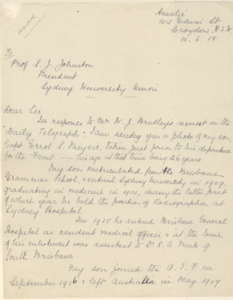 "Amalie"
Edwin St
Croydon N.S.W
10.6.18
To
Prof S. J. Johnston
President
Sydney University Union
Dear Sir
In response to Mr W. J. Bradley's request in the
"Daily Telegraph" I am sending you a photo of my son,
Capt Errol S. Meyers, taken just prior to his departure
for the Front — his age at that time being 26 years
My son matriculated from the Brisbane
Grammar School, entered Sydney University in 1909,
graduating in medicine in 1914, during the latter part
of which year he held the position of Radiographer at
Sydney Hospital.
In 1915 he entered Brisbane General
Hospital as resident medical officer & at the time
of his enlistment was assistant to Dr
South Brisbane
My son joined the A.I.F in
September 1916 & left Australia in May 1917